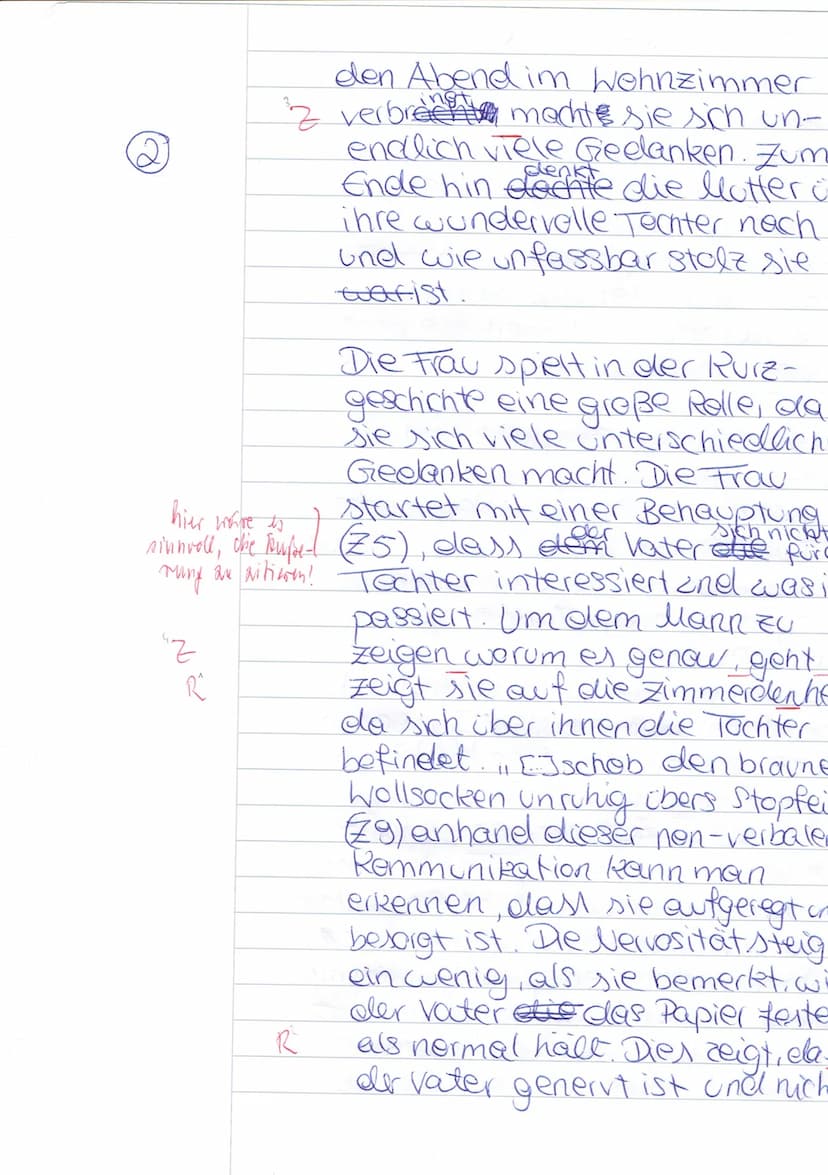 den Abend im Wohnzimmer
Z verbringt macht sie sich un-
②
endlich viele Gedanken. Zum
Ende hin denkt die Mutter ü
ihre wundervolle Tochter nach
und wie unfassbar stolz sie
ist.
Die Frau spielt in der Kurz-
geschichte eine große Rolle, da
sie sich viele unterschiedlich
Gedanken macht. Die Frau
startet mit einer Behauptung
(Z5), dass der Vater sich nicht für
hier wäre es
sinnvoll, die Äuße-
rung zu zitieren!
Tochter interessiert und was i
passiert. Um dem Mann zu
Z zeigen worum es genau, geht
R zeigt sie auf die Zimmerdenhe
da sich über ihnen die Tochter
befindet. „[]schob den braune
Wollsocken unruhig übers Stopfei
(Z9) anhand dieser non-verbale
Kommunikation kann man
erkennen, dass sie aufgeregt un
besorgt ist. Die Nervosität steig
ein wenig, als sie bemerkt, wi
der Vater das Papier feste
R als normal hält. Dies zeigt, da
der Vater genervt ist und nich